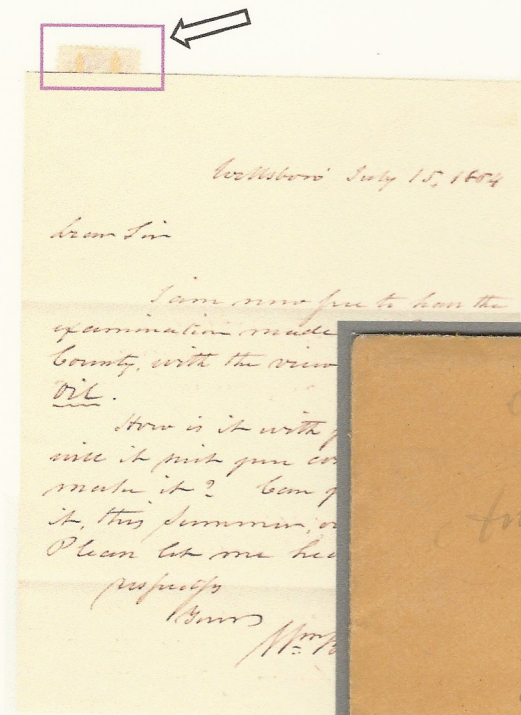 Wellsboro' July 15, 1864
Dear Sir
I am now free to have the
examination made
County, with the view
Oil.
How is it with
will it suit your
make it? Can
it, this summer, or
Please let me hea
respectfy
Yours
Wm